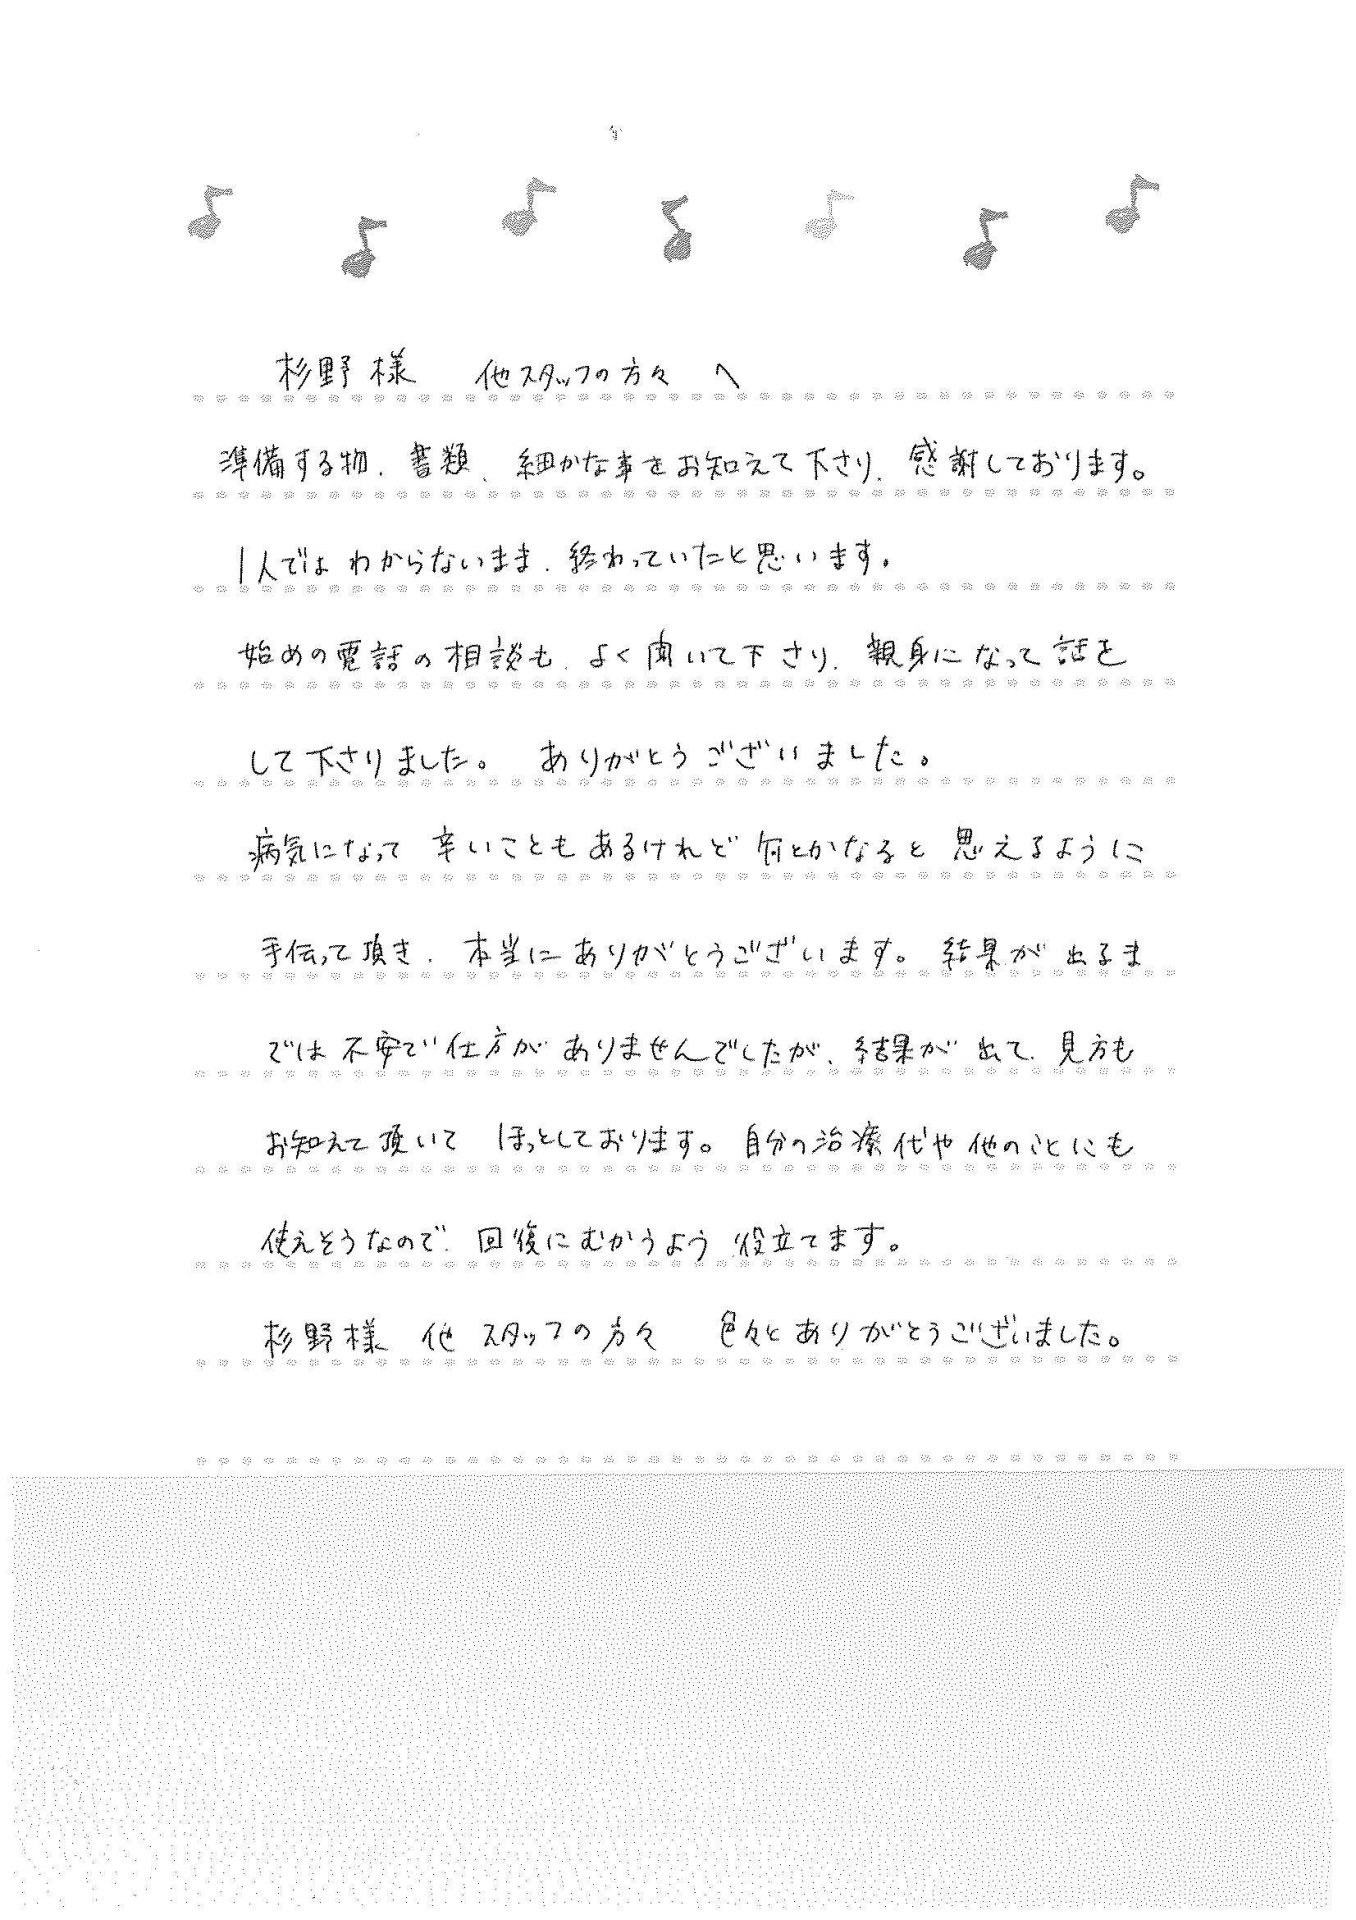 杉野様　他スタッフの方々　へ
準備する物、書類、細かな事をお知えて下さり、感謝しております。
1人では わからないまま、終わっていたと思います。
始めの電話の相談も、よく聞いて下さり、親身になって話を
して下さりました。　ありがとうございました。
病気になって 辛いこともあるけれど 何とかなると 思えるように
手伝って頂き、本当にありがとうございます。結果が 出るま
では 不安で 仕方が ありませんでしたが、結果が 出て、見方も
お知えて頂いて ほっとしております。自分の治療代や他のことにも
使えそうなので、回復にむかうよう 役立てます。
杉野様　他 スタッフの方々　色々とありがとうございました。